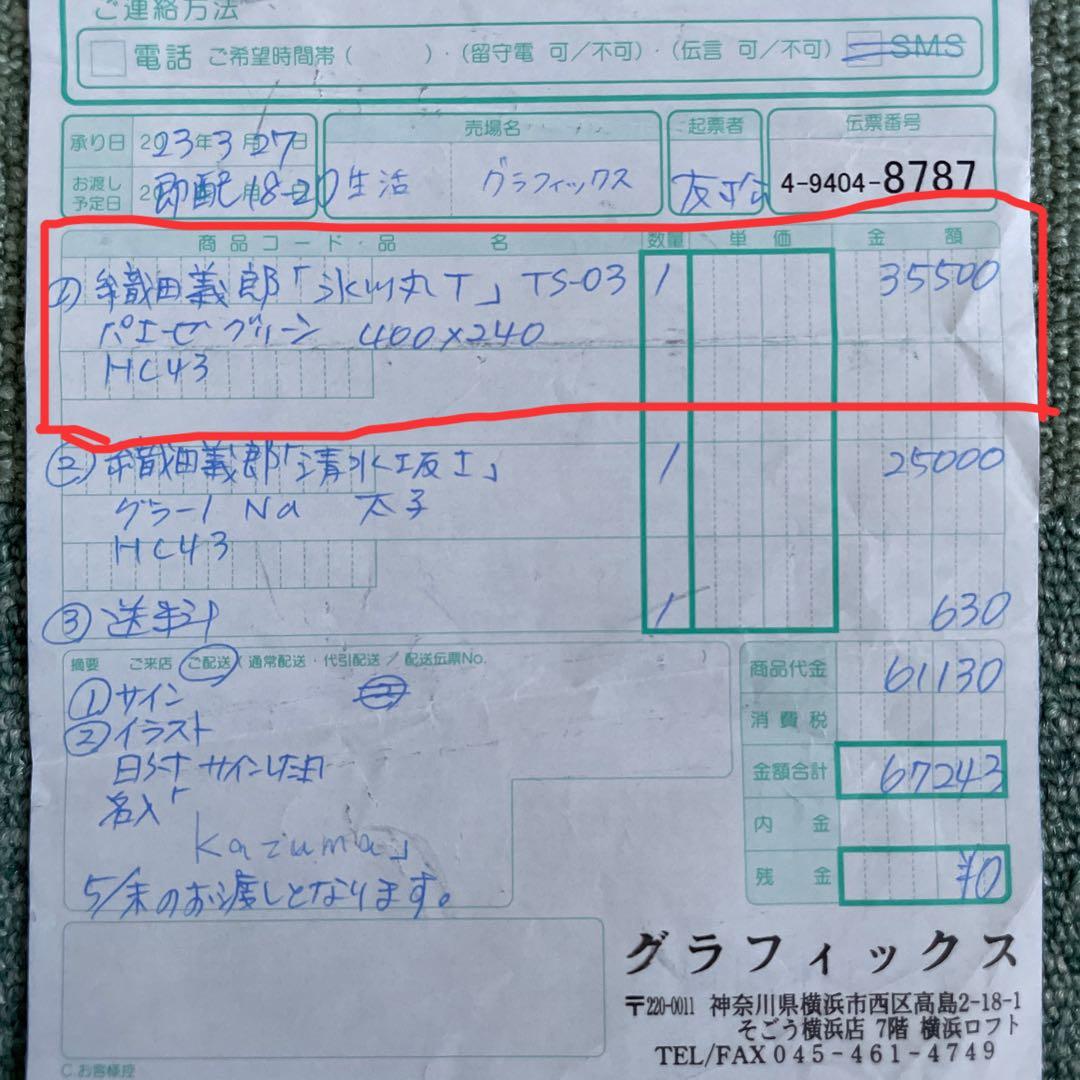 ご連絡方法
電話 ご希望時間帯 ( ) ・ (留守電 可/不可) ・ (伝言 可/不可) SMS
承り日 2023年3月27日
お渡し予定日 2 即配 18-20
売場名
生活 グラフィックス
起票者
伝票番号
4-9404-8787
商品コード・品名 数量 単価 金額
① 織田義郎「氷川丸T」 TS-03 1 35500
パエゼグリーン 400×240
HC43
② 織田義郎「清水坂I」 1 25000
グラーノNa 太子
HC43
③ 送料 1 630
摘要 ご来店 ご配送 ( 通常配送・代引配送 / 配送伝票No. )
①サイン
②イラスト
日付 サイン
名入「
kazuma」
5/末のお渡しとなります。
商品代金 61130
消費税
金額合計 67243
内金
残金 ¥0
グラフィックス
〒220-0011 神奈川県横浜市西区高島2-18-1
そごう横浜店 7階 横浜ロフト
TEL/FAX 045-461-4749
C.お客様控